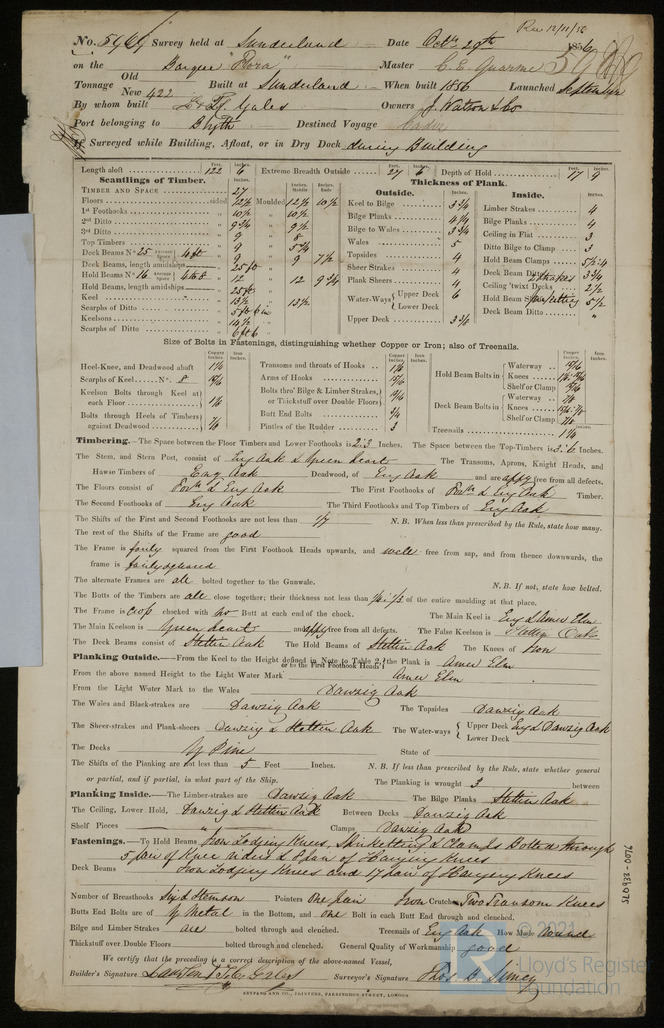 Rec 12/11/56
No. 5969 Survey held at Sunderland Date Octr 29th 1856
on the Barque "Flora" Master C. E. Quarme
Tonnage Old
New 422 Built at Sunderland When built 1856 Launched September
By whom built L & T Gales Owners J. Watson & Co
Port belonging to Blyth Destined Voyage
If Surveyed while Building, Afloat, or in Dry Dock during Building
Feet. Inches. Feet. Inches. Feet. Inches.
Length aloft 122 6 Extreme Breadth Outside 27 6 Depth of Hold 17 9
Scantlings of Timber.
TIMBER AND SPACE 27
Floors sided 12½ Moulded 12½ 10½
1st Foothooks " 10½ " 10½
2nd Ditto " 9¾ " 9½
3rd Ditto " 9 " 8
Top Timbers " 9 " 5¾
Deck Beams No 25 Average Space 4 ft " 9 " 9 7½
Deck Beams, length amidships 25 ft
Hold Beams No 16 Average Space " 12 " 12 9¾
Hold Beams, length amidships 25 ft
Keel " 13½ " 13½
Scarphs of Ditto
Keelsons 14½
Scarphs of Ditto 6 ft 6
Thickness of Plank.
Outside.
Keel to Bilge 3¾
Bilge Planks 4½
Bilge to Wales 3¾
Wales 5
Topsides 4
Sheer Strakes 4
Plank Sheers 4
Water-Ways { Upper Deck 6
Lower Deck
Upper Deck 3½
Inside.
Limber Strakes 4
Bilge Planks 4
Ceiling in Flat 3
Ditto Bilge to Clamp 3
Hold Beam Clamps 5½ : 4
Deck Beam Ditto & Strakes 3¾
Ceiling 'twixt Decks 2½
Hold Beam Spirketting 5½
Deck Beam Ditto "
Size of Bolts in Fastenings, distinguishing whether Copper or Iron; also of Treenails.
Copper Inches Iron Inches.
Heel-Knee, and Deadwood abaft 1⅛
Scarphs of Keel No. 8
Keelson Bolts through Keel at each Floor 1⅛
Bolts through Heels of Timbers against Deadwood ⅞
Transoms and throats of Hooks 1⅛
Arms of Hooks
Bolts thro' Bilge & Limber Strakes, or Thickstuff over Double Floors
Butt End Bolts ¾
Pintles of the Rudder 3
Hold Beam Bolts in { Waterway
Knees
Shelf or Clamp
Deck Beam Bolts in { Waterway ⅞
Knees
Shelf or Clamp ⅞
Treenails 1⅛
Timbering.—The Space between the Floor Timbers and Lower Foothooks is 2:3 Inches. The Space between the Top-Timbers is 3:6 Inches.
The Stem, and Stern Post, consist of Eng Oak & Green heart The Transoms, Aprons, Knight Heads, and
Hawse Timbers of Eng Oak Deadwood, of Eng Oak and are appy free from all defects.
The Floors consist of & Eng Oak The First Foothooks of & Eng Oak Timber.
The Second Foothooks of Eng Oak The Third Foothooks and Top Timbers of Eng Oak
The Shifts of the First and Second Foothooks are not less than 1/7 N. B. When less than prescribed by the Rule, state how many.
The rest of the Shifts of the Frame are good
The Frame is fairly squared from the First Foothook Heads upwards, and well free from sap, and from thence downwards, the
frame is fairly squared
The alternate Frames are all bolted together to the Gunwale. N. B. If not, state how bolted.
The Butts of the Timbers are all close together; their thickness not less than of the entire moulding at that place.
The Frame is crop chocked with no Butt at each end of the chock. The Main Keel is Eng & Amer Elm
The Main Keelson is Green heart and appy free from all defects. The False Keelson is Stettin Oak
The Deck Beams consist of Stettin Oak The Hold Beams of Stettin Oak The Knees of Iron
Planking Outside.—From the Keel to the Height defined in Note to Table 2, or to the First Foothook Heads, the Plank is Amer Elm
From the above named Height to the Light Water Mark Amer Elm
From the Light Water Mark to the Wales Danzig Oak
The Wales and Black-strakes are Danzig Oak The Topsides Danzig Oak
The Sheer-strakes and Plank-sheers Danzig & Stettin Oak The Water-ways { Upper Deck Eng & Danzig Oak
Lower Deck
The Decks Y Pine State of
The Shifts of the Planking are not less than 5 Feet Inches. N. B. If less than prescribed by the Rule, state whether general
or partial, and if partial, in what part of the Ship. The Planking is wrought 3 between
Planking Inside.—The Limber-strakes are Danzig Oak The Bilge Planks Stettin Oak
The Ceiling, Lower Hold, Danzig & Stettin Oak Between Decks Danzig Oak
Shelf Pieces " Clamps Danzig Oak
Fastenings.—To Hold Beams Iron Lodging Knees, Spirketting & Clamps Bolted through
5 pair of Knee riders & 8 pair of Hanging Knees
Deck Beams Iron Lodging Knees and 17 pair of Hanging Knees
Number of Breasthooks Six & Stemson Pointers One Pair Iron Crutches Two Transom Knees
Butts End Bolts are of Y Metal in the Bottom, and one Bolt in each Butt End through and clenched.
Bilge and Limber Strakes are bolted through and clenched. Treenails of Eng Oak How Made Round
Thickstuff over Double Floors bolted through and clenched. General Quality of Workmanship good
We certify that the preceding is a correct description of the above-named Vessel,
Builder's Signature, Surveyor's Signature
SEYFANG AND CO., PRINTERS, FARRINGDON STREET, LONDON
© 2021
Lloyd's Register
Foundation